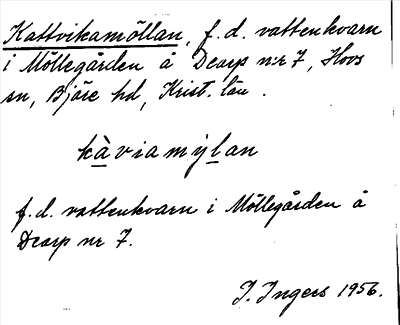 Kattvikamöllan, f.d. vattenkvarn
i Möllegården å Dearp nr 7, Hovs
sn, Bjäre hd, Krist. län.
kàviamýlan
f.d. vattenkvarn i Möllegården å
Dearp nr 7.
I. Ingers 1956.